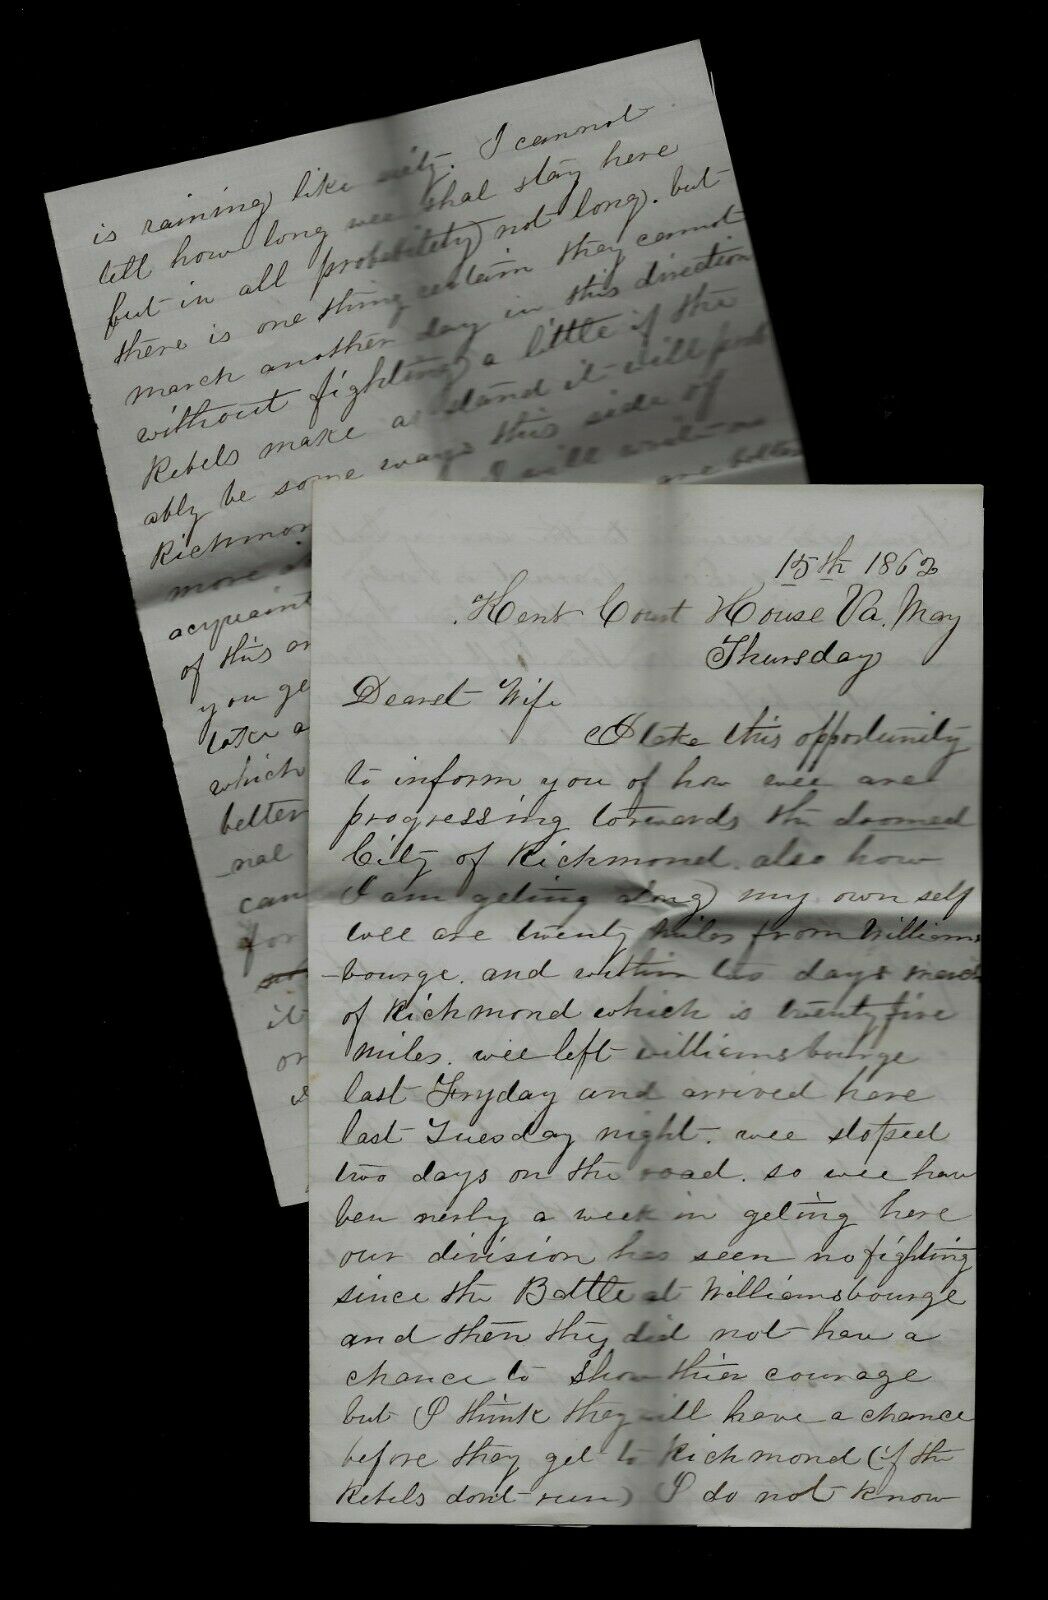 15th 1862
Kent Court House Va. May
Thursday
Dearest Wife
I take this opportunity
to inform you of how wee are
progressing towards the doomed
City of Richmond. also how
I am geting along my own self
wee are twenty miles from Williams
-bourge. and within two days march
of Richmond which is twenty five
miles. wee left williamsbourge
last Fryday and arrived here
last Tuesday night. wee stoped
two days on the road. so wee have
ben nerly a week in geting here
our division has seen no fighting
since the Battle at Williamsbourge
and then they did not have a
chance to show thier courage
but I think they will have a chance
before they get to Richmond (if the
Rebels dont run) I do not know
is raining like I cannot
tell how long wee shal stay here
but in all probebility not long. but
there is one thing certain they cannot
march another day in this direction
without fighting a little if the
Rebels make a stand it will prob
ably be some ways this side of
Richmon I will write no
more
acquaint
of this
you ge
take a
which
better
nal
can
for
it
on